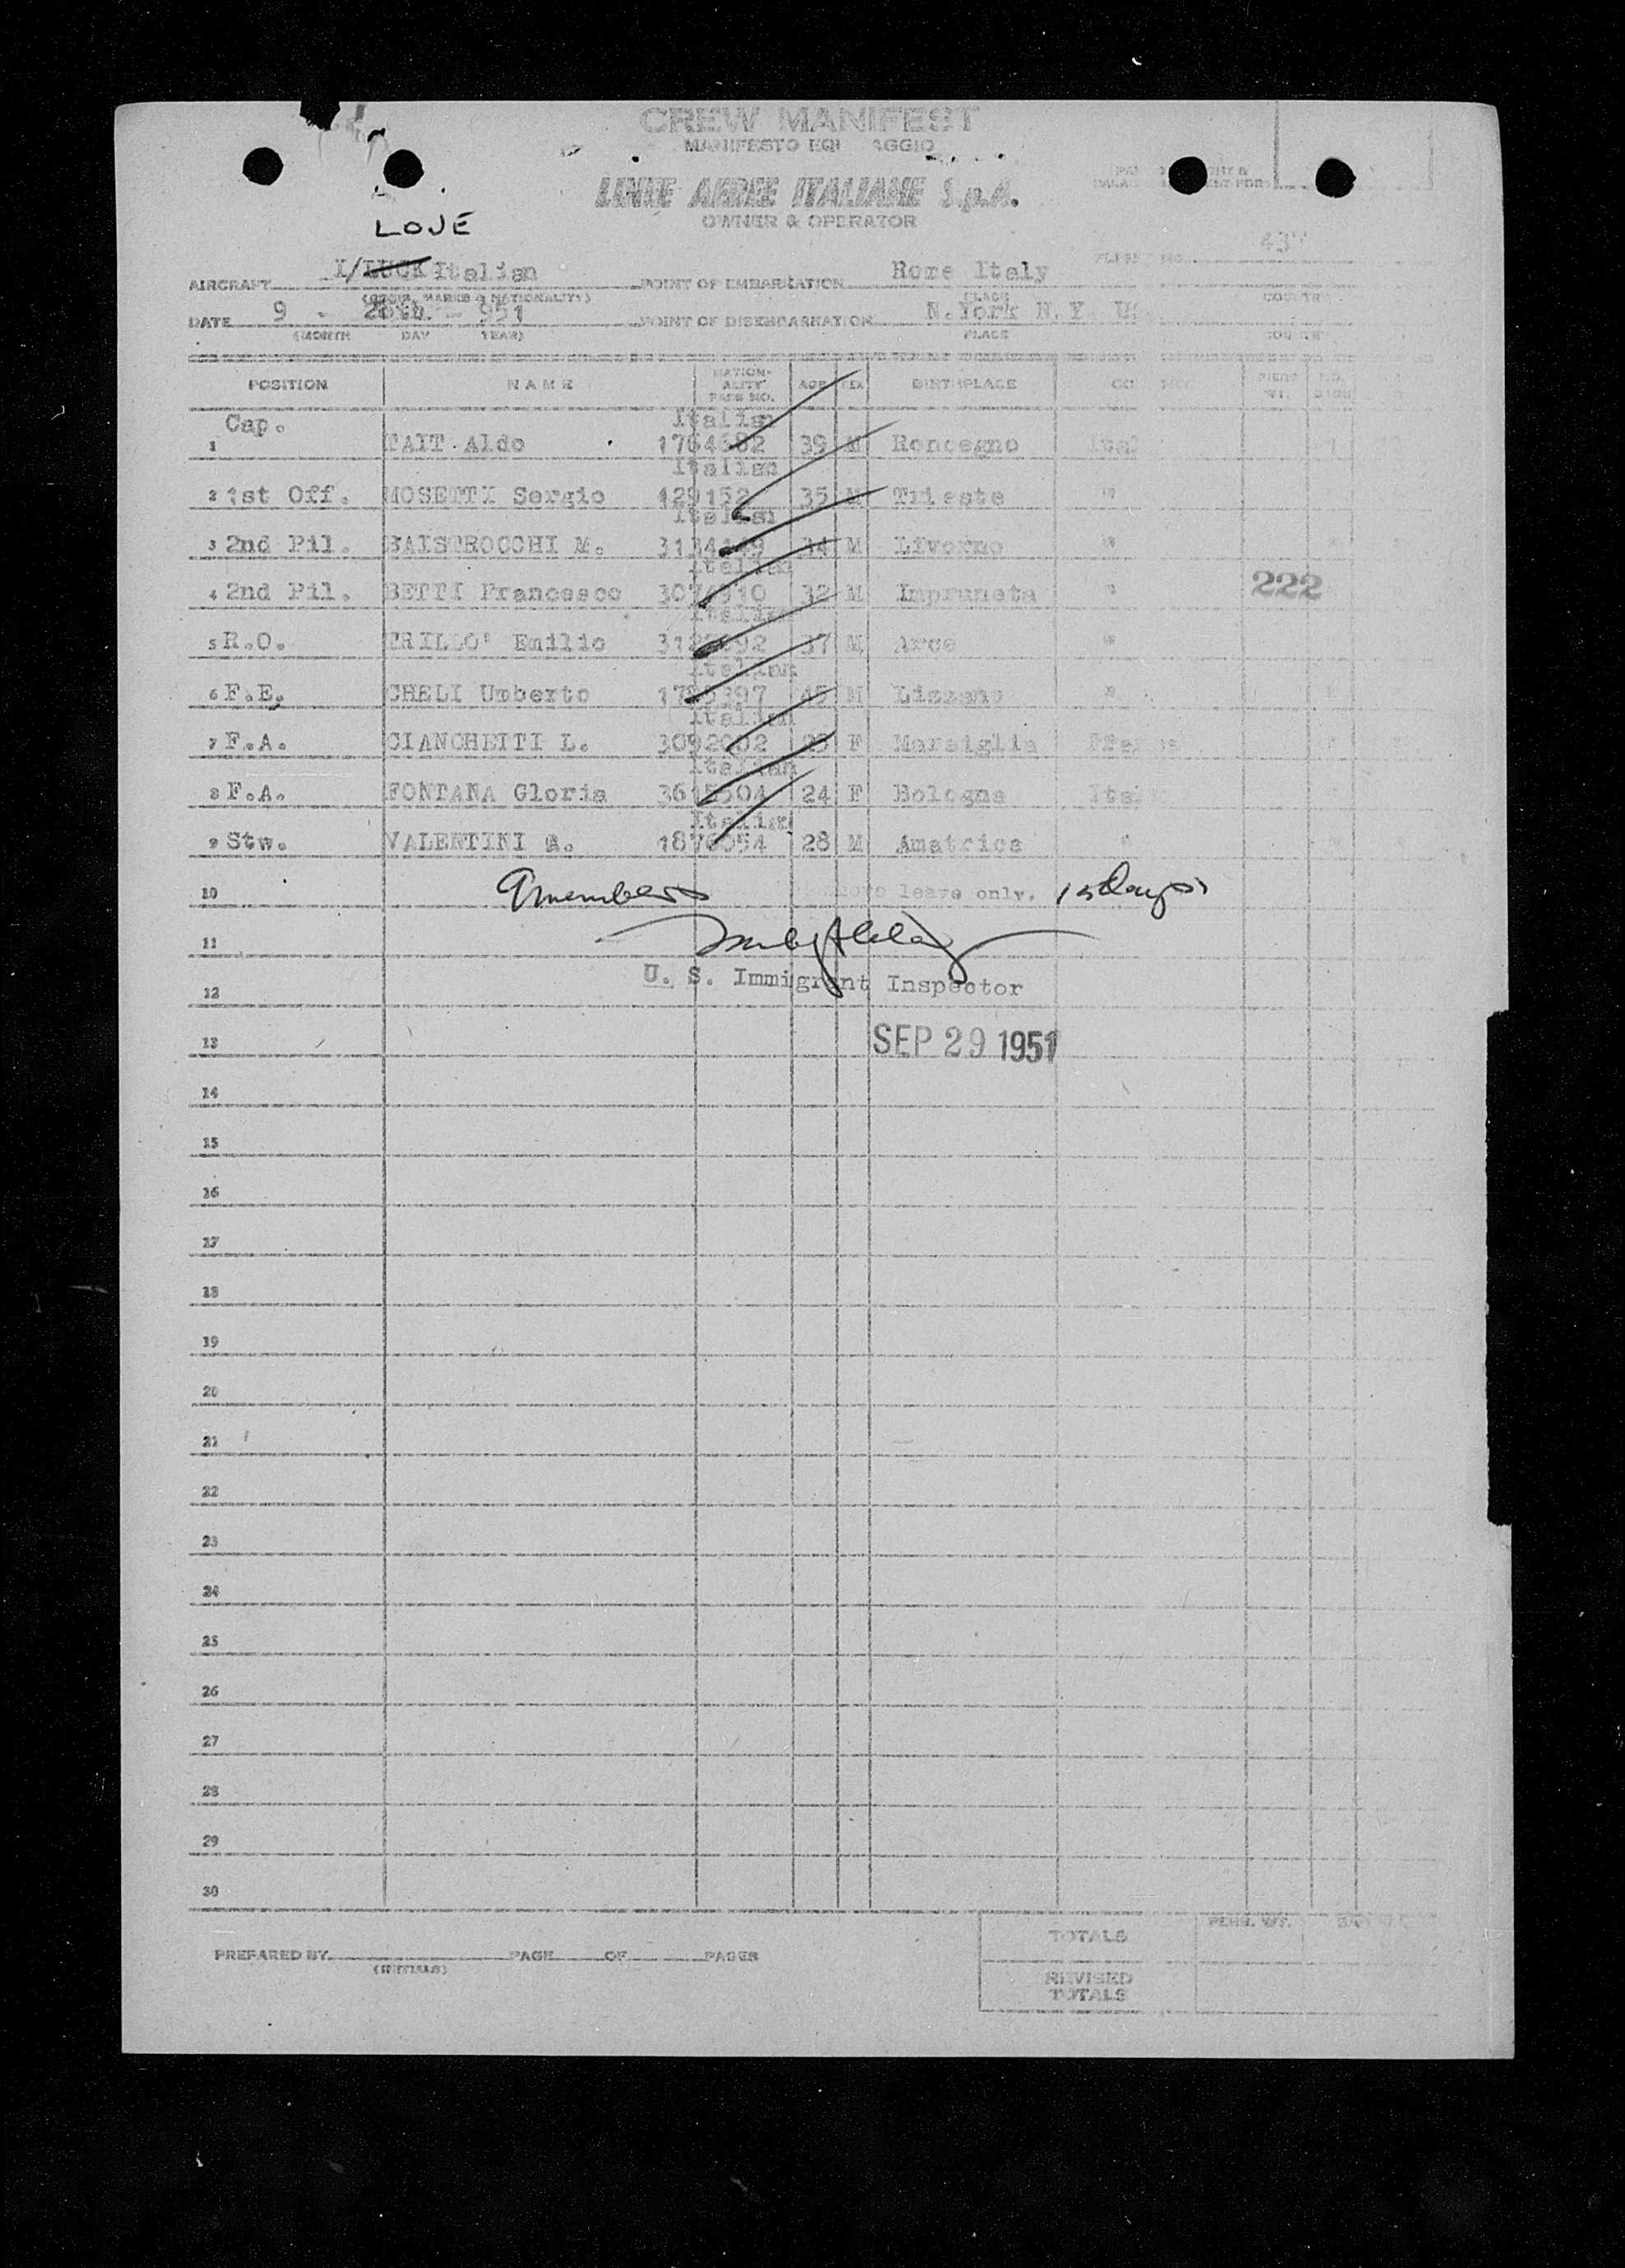 CREW MANIFEST
MANIFESTO EQUI AGGIO
LINEE AEREE ITALIANE S.p.A.
OWNER & OPERATOR
LOVE
AIRCRAFT I/LUCK Italian POINT OF EMBARKATION Rome Italy FLIGHT NO.
(REGIS. MARKS & NATIONALITY) PLACE COUNTRY
DATE 9 - 951 POINT OF DISEMBARKATION N.York N.Y
(MONTH DAY YEAR) PLACE COUNTRY
POSITION NAME NATION-ALITY PASS NO. AGE SEX BIRTHPLACE
Cap. Italian
1 TAIT Aldo 1764682 39 M Roncegno Ital
Italian
2 1st Off. MOSETTI Sergio 129152 35 M Trieste "
Italian
3 2nd Pil. BAISTROCCHI M. 34 M Livorno "
Italian
4 2nd Pil. BETTI Francesco 32 M Impruneta " 222
Italian
5 R.O. TRILLO' Emilio 37 M Arce "
Italian
6 F.E. CHELI Umberto 45 M Lizzano "
Italian
7 F.A. CIANCHETTI L. 3092002 F Marsiglia
Italian
8 F.A. FONTANA Gloria 3615504 24 F Bologna Ita
Italian
9 Stw. VALENTINI 1876054 28 M Amatrice "
10 9 members shore leave only. 15 days
11
12 U. S. Immigrant Inspector
13 SEP 29 1951
14
15
16
17
18
19
20
21
22
23
24
25
26
27
28
29
30
PREPARED BY PAGE OF PAGES
(INITIALS)
TOTALS PERS. WT.
REVISED
TOTALS